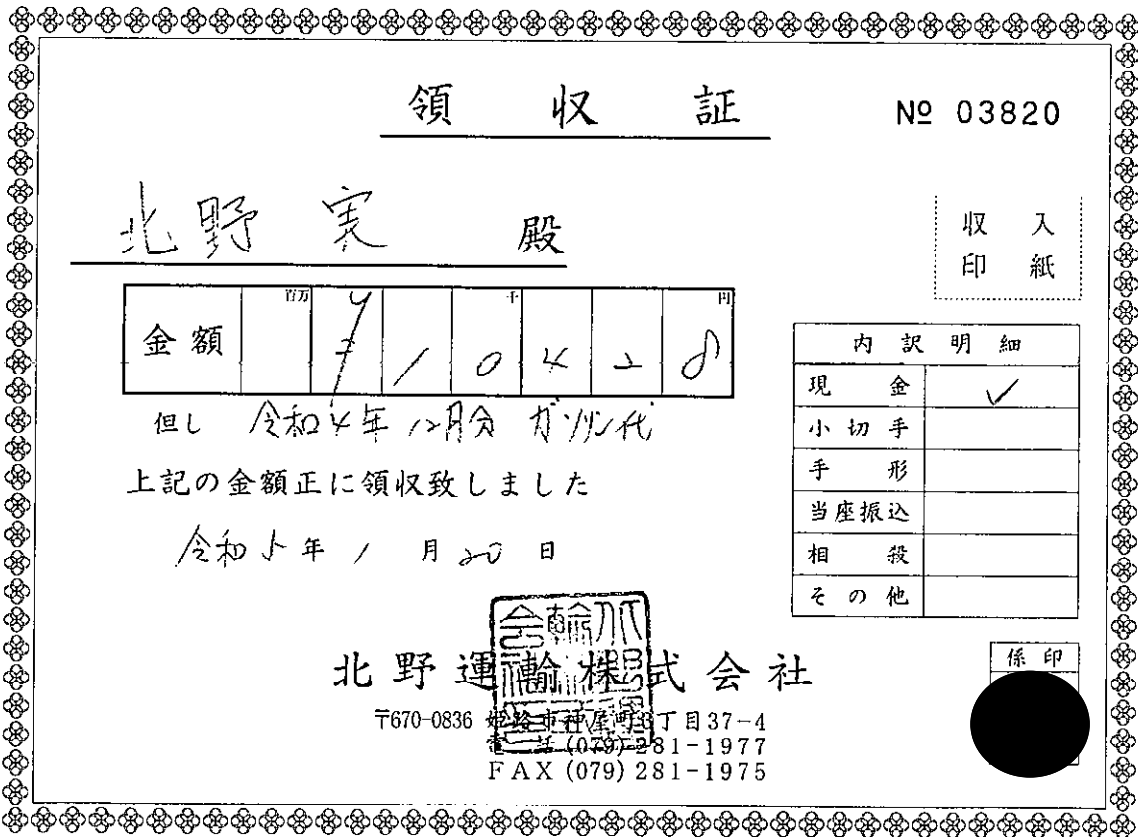 領収証
№ 03820
北野 実 殿
収入
印紙
金額 百万 千 円
¥10428
但し 令和4年12月分 ガソリン代
上記の金額正に領収致しました
令和5年1月20日
内訳明細
現金 ✓
小切手
手形
当座振込
相殺
その他
係印
北野運輸株式会社
〒670-0836 姫路市神屋町3丁目37-4
電話(079)281-1977
FAX(079)281-1975